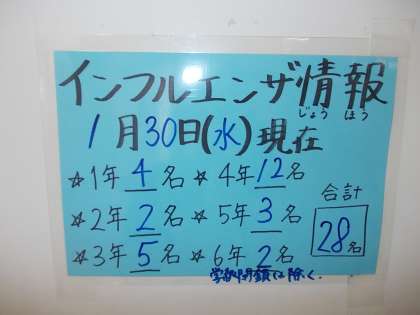 インフルエンザ情報
じょうほう
1月30日(水)現在
☆1年 4名 ☆4年 12名
☆2年 2名 ☆5年 3名
☆3年 5名 ☆6年 2名
合計
28名
学級閉鎖は除く.